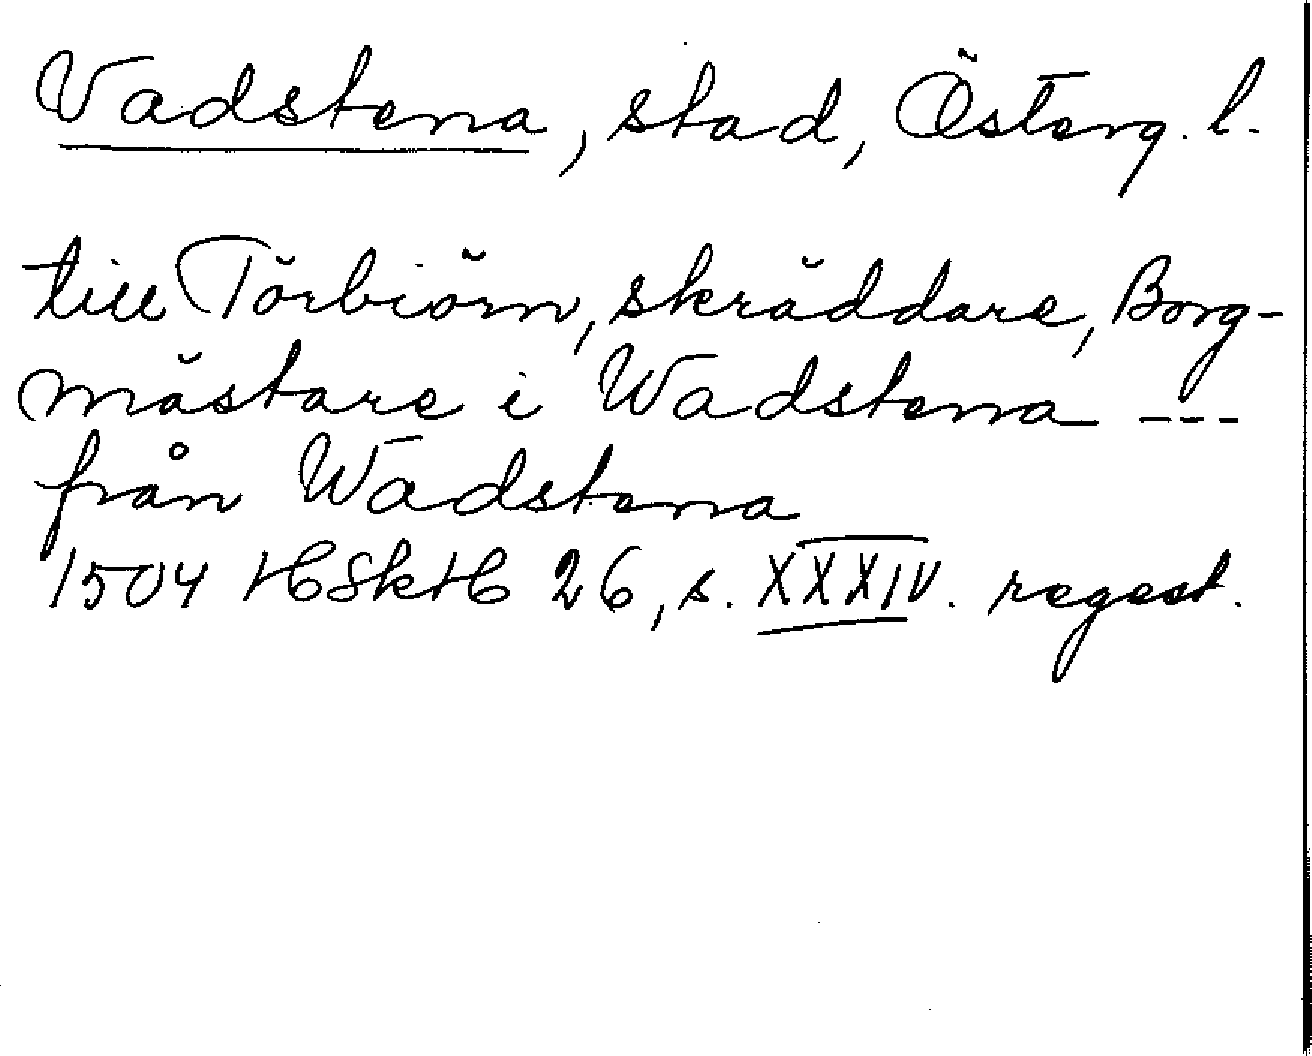 Vadstena, stad, Österg. l.
till Törbiörn, skräddare, Borg-
mästare i Wadstena ---
från Wadstena
1504 HSkH 26, s. XXXIV. regest.